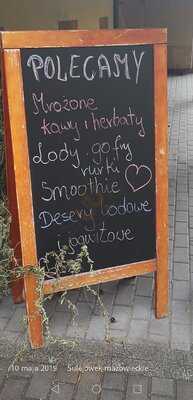 POLECAMY
Mrożone
kawy i herbaty
Lody, gofry
rurki
Smoothie
Desery lodowe
i owocowe
10 maja 2019 Sulejówek mazowieckie